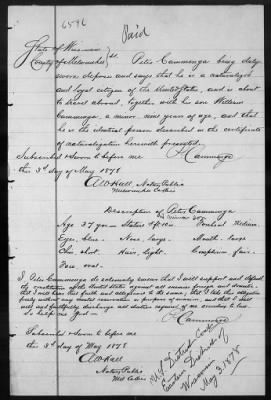 6596
Paid
State of Wisconsin
County of Milwaukee } ss. Peter Cammenga being duly
sworn deposes and says that he is a naturalized
and loyal citizen of the United States, and is about
to travel abroad, together with his son William
Cammenga, a minor, nine years of age, and that
he is the identical person described in the certificate
of naturalization herewith presented.
Subscribed & Sworn to before me
this 3rd day of May 1878 P. Cammenga
Notary Public
Milwaukee
Description of Peter Cammenga
Age 37 years Stature 5 ft 10 in Forehead Medium
Eyes, blue. Nose, large. Mouth large
Chin short. Hair, light. Complexion fair.
Face oval.
I, Peter Cammenga do solemnly swear that I will support and defend
the constitution of the United States against all enemies foreign and domestic;
that I will bear true faith and allegiance to the same; that I take this obligation
freely without any mental reservation or purpose of evasion, and that I will
well and faithfully discharge all duties
So help me God
Cammenga
Subscribed & Sworn to before me
this 3rd day of May 1878
Notary Public
U.S. District Court
Eastern District of
Wisconsin
May 3. 1878